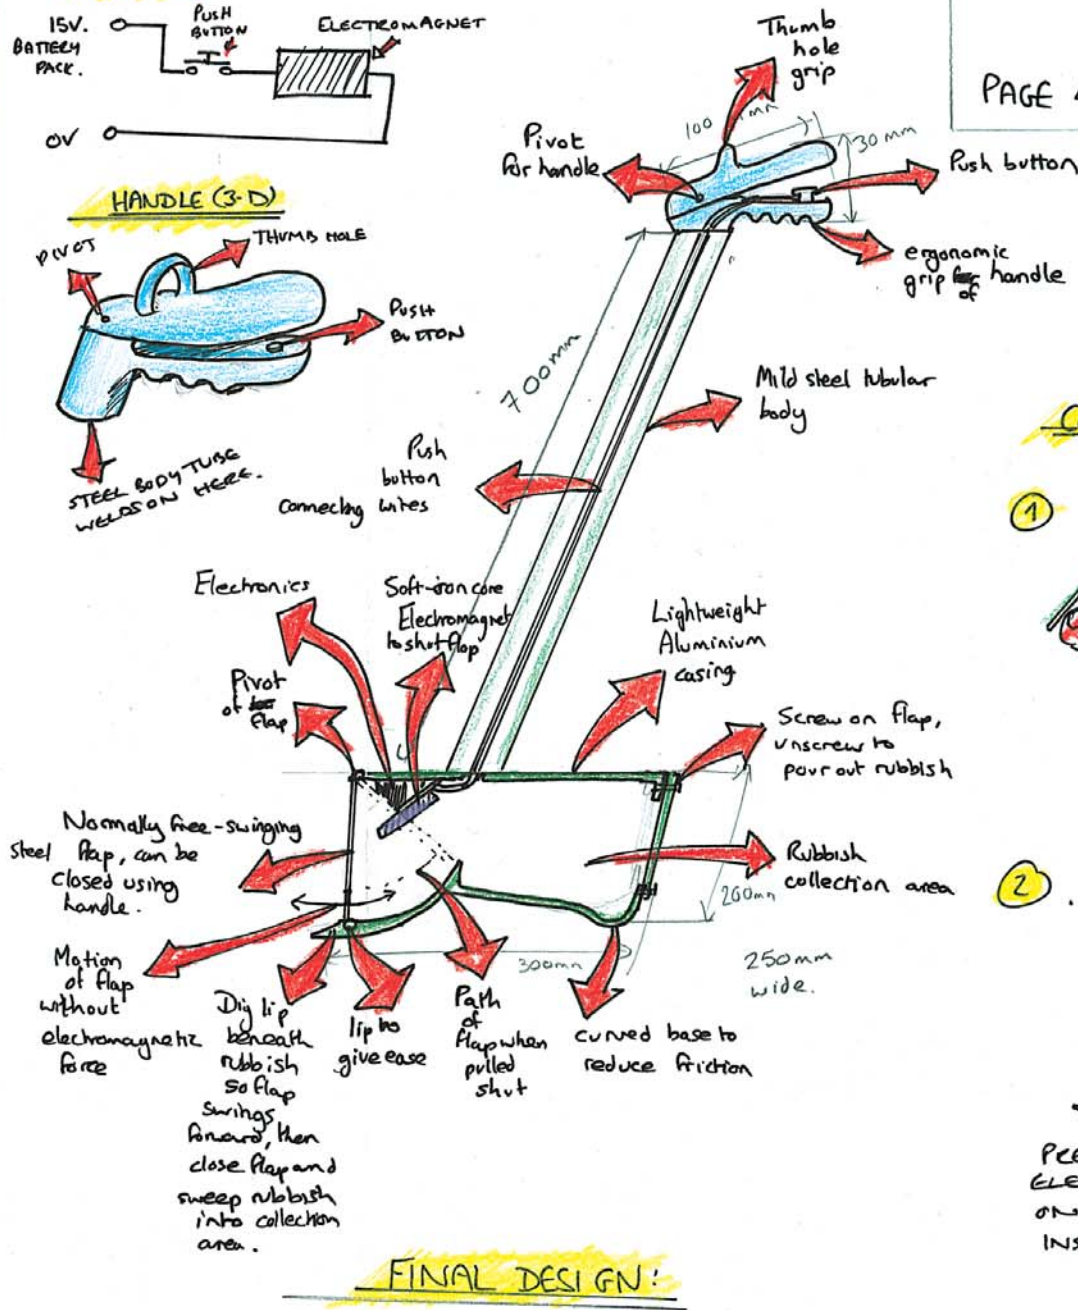 15V.
BATTERY
PACK.
PUSH
BUTTON
ELECTROMAGNET
0V
HANDLE (3-D)
PIVOT
THUMB HOLE
PUSH
BUTTON
STEEL BODY TUBE
WELDS ON HERE.
Thumb
hole
grip
PAGE
100 mm
30 mm
Pivot
for handle
Push button
ergonomic
grip of handle
700mm
Mild steel tubular
body
Push
button
connecting wires
Electronics
Soft-iron core
Electromagnet
to shut flap
Pivot
of flap
Lightweight
Aluminium
casing
Screw on flap,
unscrew to
pour out rubbish
Normally free-swinging
steel flap, can be
closed using
handle.
Rubbish
collection area
1
2
200mm
300mm
250mm
wide.
Motion
of flap
without
electromagnetic
force
Dig lip
beneath
rubbish
so flap
swings
forward, then
close flap and
sweep rubbish
into collection
area.
lip to
give ease
Path
of
flap when
pulled
shut
curved base to
reduce friction
ELE
ON
INS
FINAL DESIGN: